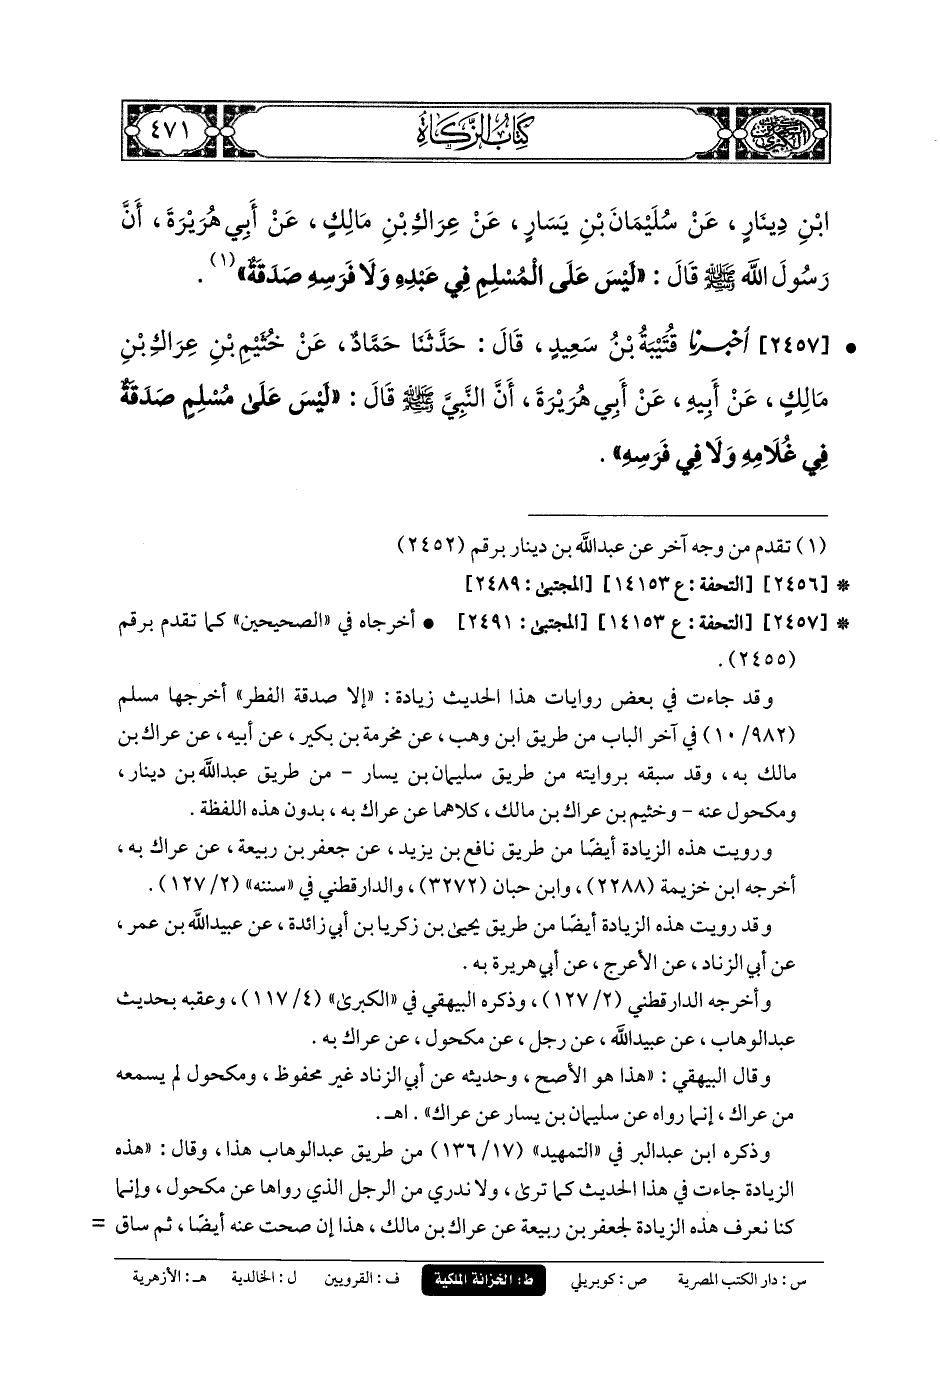 كتاب الزكاة
٤٧١
ابْنِ دِينَارٍ ، عَنْ سُلَيْمَانَ بْنِ يَسَارٍ ، عَنْ عِرَاكِ بْنِ مَالِكٍ ، عَنْ أَبِي هُرَيْرَةَ ، أَنَّ
رَسُولَ اللَّه ﷺ قَالَ : «لَيْسَ عَلَى الْمُسْلِمِ فِي عَبْدِهِ وَلَا فَرَسِهِ صَدَقَةٌ»(١) .
• [٢٤٥٧] أخبرنا قُتَيْبَةُ بْنُ سَعِيدٍ ، قَالَ : حَدَّثَنَا حَمَّادٌ ، عَنْ خُثَيْمِ بْنِ عِرَاكِ بْنِ
مَالِكٍ ، عَنْ أَبِيهِ ، عَنْ أَبِي هُرَيْرَةَ ، أَنَّ النَّبِيَّ ﷺ قَالَ : «لَيْسَ عَلَىٰ مُسْلِمٍ صَدَقَةٌ
فِي غُلَامِهِ وَلَا فِي فَرَسِهِ» .
(١) تقدم من وجه آخر عن عبداللَّه بن دينار برقم (٢٤٥٢)
* [٢٤٥٦] [التحفة : ع ١٤١٥٣] [المجتبى : ٢٤٨٩]
* [٢٤٥٧] [التحفة : ع ١٤١٥٣] [المجتبى : ٢٤٩١] • أخرجاه في «الصحيحين» كما تقدم برقم
(٢٤٥٥) .
وقد جاءت في بعض روايات هذا الحديث زيادة : «إلا صدقة الفطر» أخرجها مسلم
(٩٨٢/ ١٠) في آخر الباب من طريق ابن وهب ، عن مخرمة بن بكير ، عن أبيه ، عن عراك بن
مالك به ، وقد سبقه بروايته من طريق سليمان بن يسار - من طريق عبداللَّه بن دينار ،
ومكحول عنه - وخثيم بن عراك بن مالك ، كلاهما عن عراك به ، بدون هذه اللفظة .
ورويت هذه الزيادة أيضًا من طريق نافع بن يزيد ، عن جعفر بن ربيعة ، عن عراك به ،
أخرجه ابن خزيمة (٢٢٨٨) ، وابن حبان (٣٢٧٢) ، والدارقطني في «سننه» (٢/ ١٢٧) .
وقد رويت هذه الزيادة أيضًا من طريق يحيى بن زكريا بن أبي زائدة ، عن عبيداللَّه بن عمر ،
عن أبي الزناد ، عن الأعرج ، عن أبي هريرة به .
وأخرجه الدارقطني (٢/ ١٢٧) ، وذكره البيهقي في «الكبرى» (٤/ ١١٧) ، وعقبه بحديث
عبدالوهاب ، عن عبيداللَّه ، عن رجل ، عن مكحول ، عن عراك به .
وقال البيهقي : «هذا هو الأصح ، وحديثه عن أبي الزناد غير محفوظ ، ومكحول لم يسمعه
من عراك ، إنما رواه عن سليمان بن يسار عن عراك» . اهـ .
وذكره ابن عبدالبر في «التمهيد» (١٧/ ١٣٦) من طريق عبدالوهاب هذا ، وقال : «هذه
الزيادة جاءت في هذا الحديث كما ترى ، ولا ندري من الرجل الذي رواها عن مكحول ، وإنما
كنا نعرف هذه الزيادة لجعفر بن ربيعة عن عراك بن مالك ، هذا إن صحت عنه أيضًا ، ثم ساق =
س : دار الكتب المصرية ص : كوبريلي ط : الخزانة الملكية ف : القرويين ل : الخالدية هـ : الأزهرية